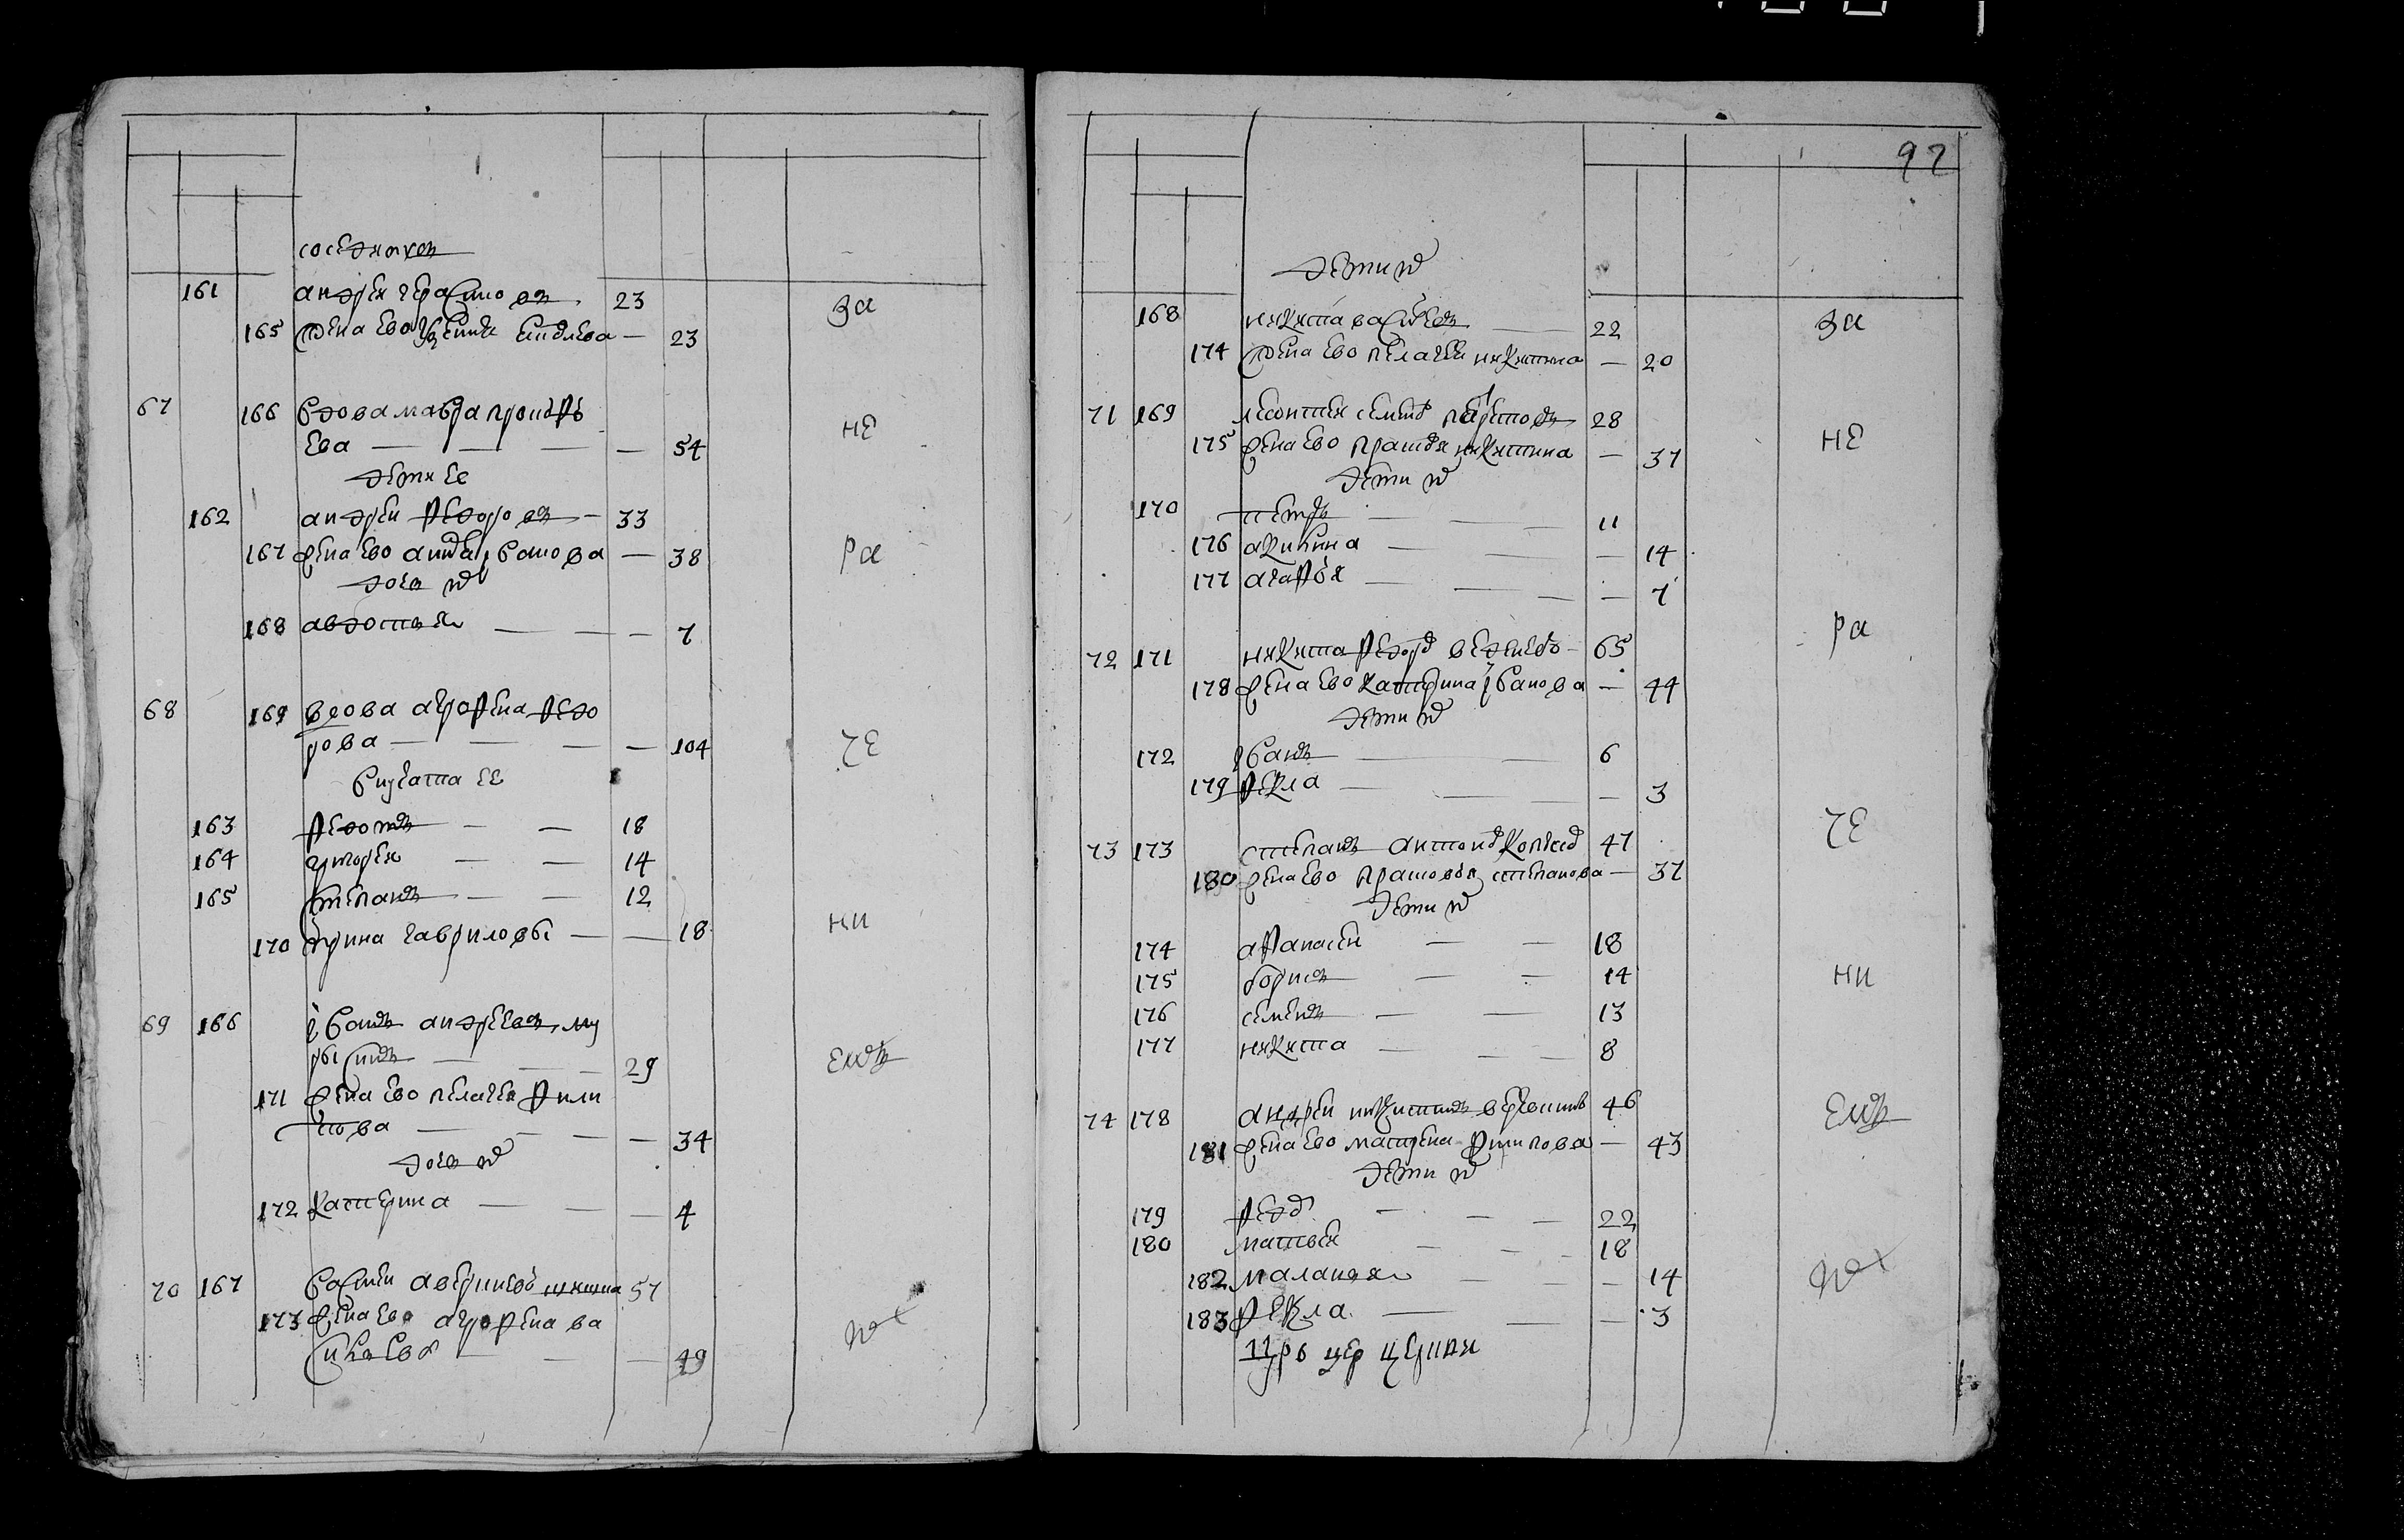 161 андрей герасимовъ 23 за
165 жена ево 23
67 166 вдова мавра прокофь
ева 54 не
дети ее
162 андрей федоровъ 33
167 жена ево анна иванова 38 ра
дочь их
168 авдотья 7
68 169 вдова аграфена федо
рова 104 че
внучата ее
163 федотъ 18
164 григорей 14
165 степанъ 12
170 ирина гаврилова 18 ни
69 166 иванъ андреевъ му
29 емъ
171 жена ево пелагея фили
пова 34
дочь их
172 катерина 4
70 167 василей 57
173 жена ево аграфена ва
сильева 49 их
92
дети их
168 никита васильевъ 22 за
174 жена ево пелагея никитина 20
71 169 леонтей семенов 28
175 жена ево прасковья никитина 37 не
дети их
170 петръ 11
176 акилина 14
177 агафья 7
72 171 никита федоров 65 ра
178 жена ево катерина иванова 44
дети их
172 иванъ 6
179 фекла 3
73 173 степанъ антонов 47 че
180 жена ево прасковья степанова 37
дети их
174 афанасей 18
175 борисъ 14 ни
176 семенъ 13
177 никита 8
74 178 андрей никитинъ 46 емъ
181 жена ево матрена филипова 43
дети их
179 федор 22
180 матвей 18
182 маланья 14 их
183 фекла 3